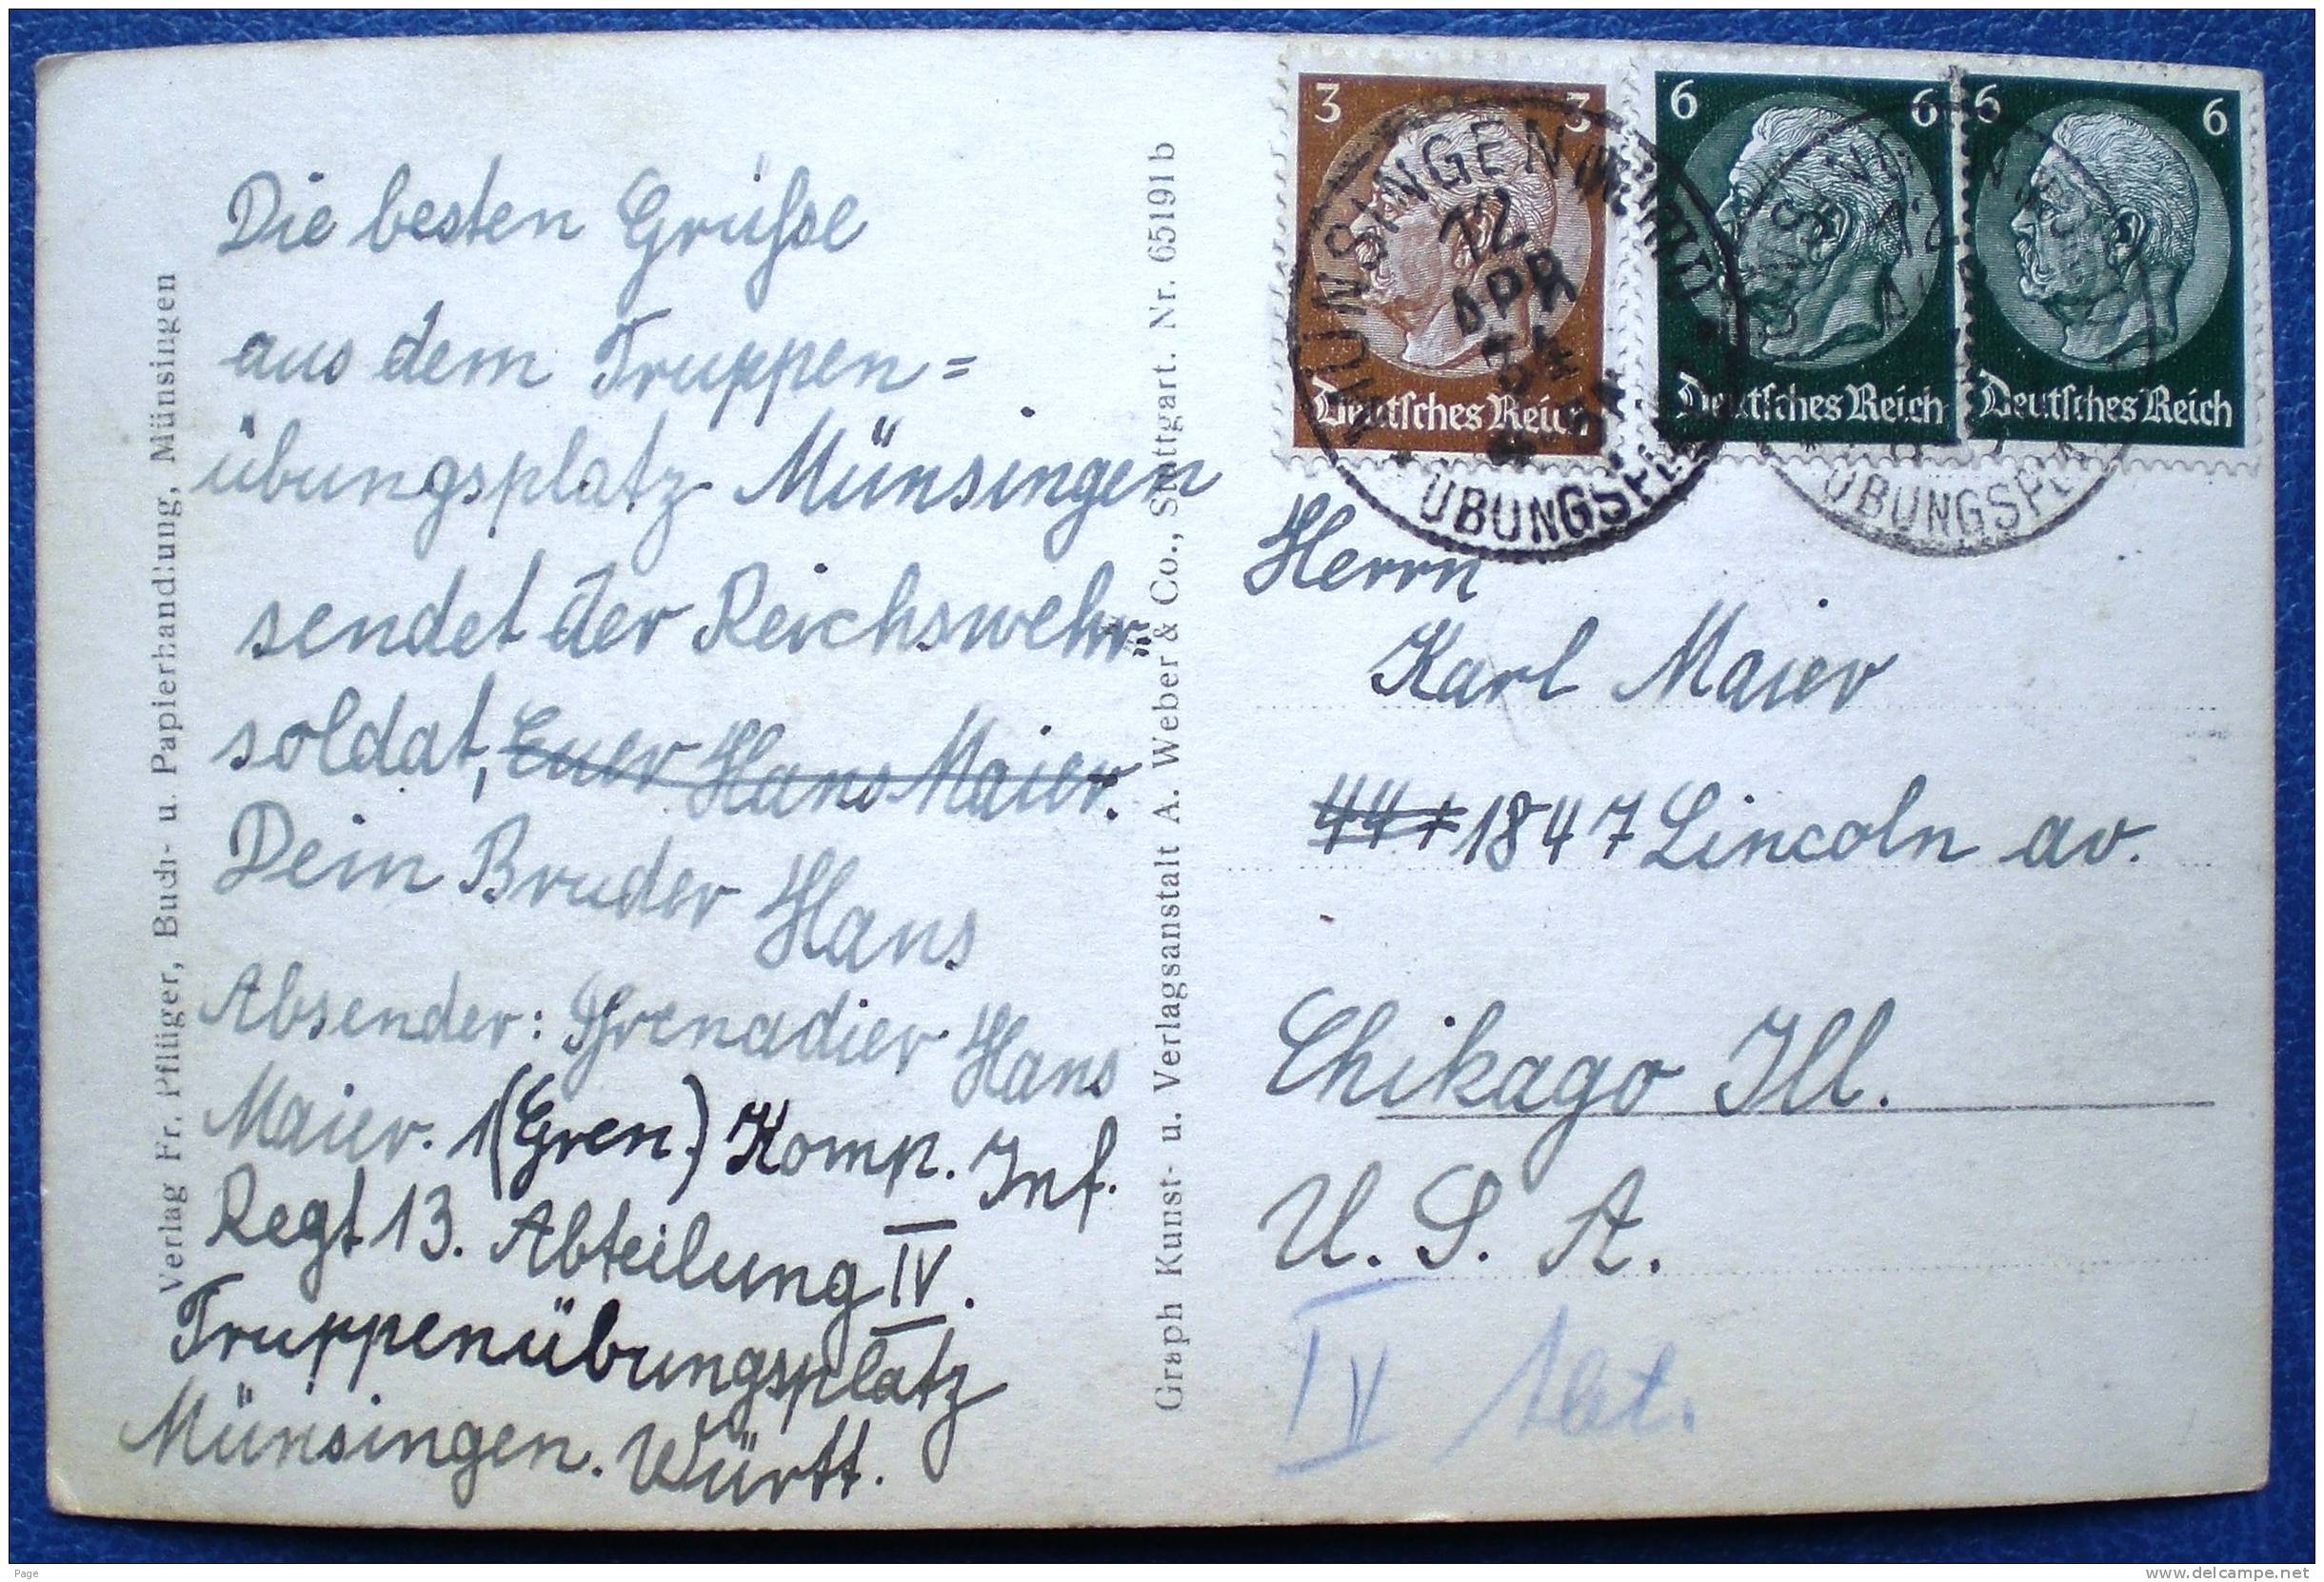 Die besten Grüsse
aus dem Truppen=
übungsplatz Münsingen
sendet der Reichswehr
soldat, Euer Hans Maier.
Dein Bruder Hans
Absender: Grenadier Hans
Maier. 1(Gren.) Komp. Inf.
Regt 13. Abteilung IV.
Truppenübungsplatz
Münsingen. Württ.
Verlag Fr. Pflüger, Buch- u. Papierhandlung, Münsingen
Graph Kunst- u. Verlagsanstalt A. Weber & Co., Stuttgart. Nr. 65191 b
3 3
Deutsches Reich
6 6
Deutsches Reich
6 6
Deutsches Reich
MÜNSINGEN
12
APR
34
ÜBUNGSPL
ÜBUNGSPL
Herrn
Karl Maier
1847 Lincoln av.
Chikago Ill.
U. S. A.
IV Abt.
Page
www.delcampe.net